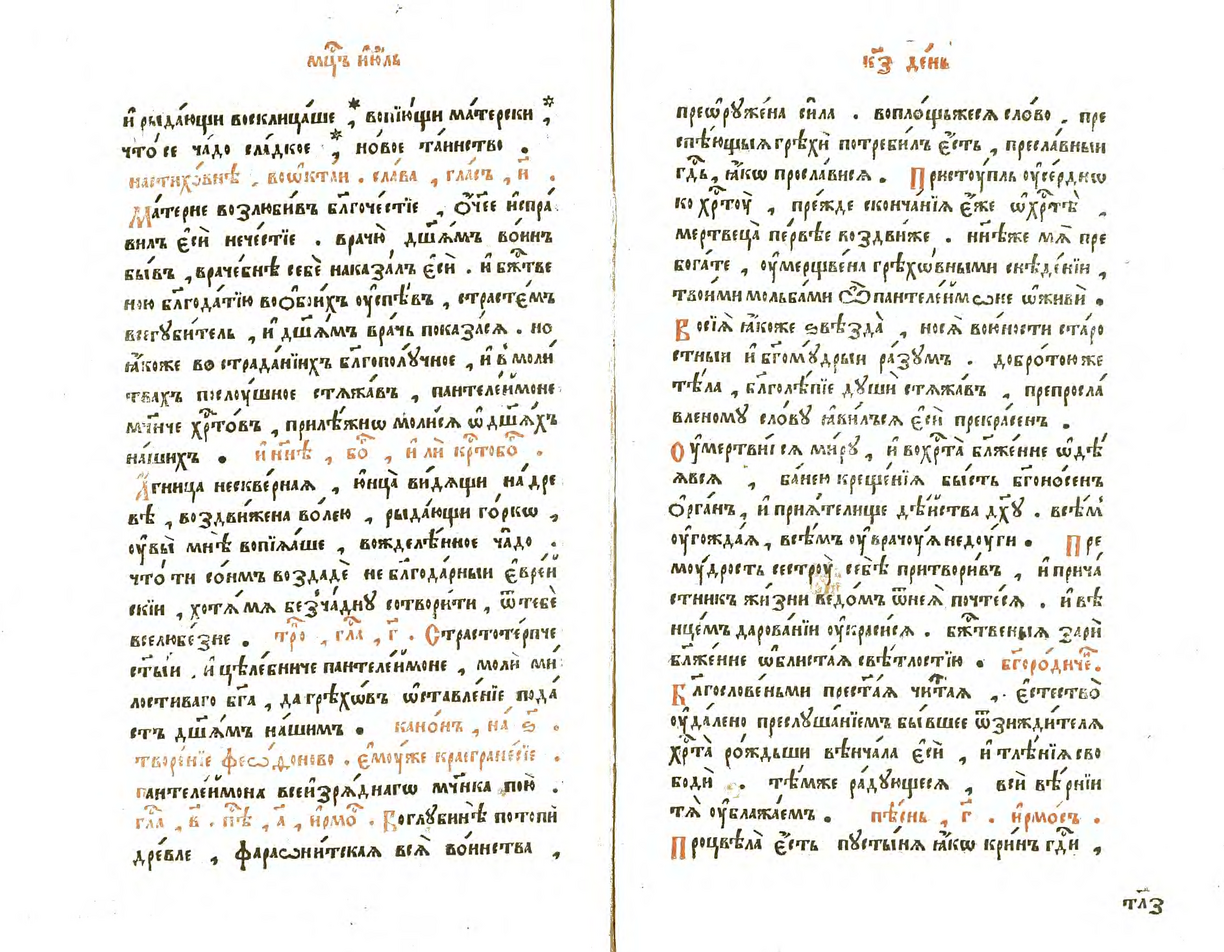 мц҃ъ і҆ю́ль
и҆ рыда́ющи восклица́ше , вопїю́щи ма́терски ,
что̀ се ча́до сла́дкое , но́вое та́инство .
настихо́внѣ , воѡ҆ктаи . сла́ва , гла́съ , и҃ .
Ма́терне возлюби́въ бл҃гоче́стїе , ѻ҆́ч҃ее и҆спра́
вилъ є҆сѝ нече́стїе . врачю̀ дш҃а́мъ во́инъ
бы́въ , враче́бнѣ себѐ наказа́лъ є҆сѝ . и҆ бж҃тве
ною бл҃года́тїю воѻ҆бои́хъ ᲂу҆спѣ́въ , страсте́мъ
всегуби́тель , и҆ дш҃а́мъ вра́чь показа́лсѧ . но
ꙗ҆́коже во страда́нїихъ бл҃гополу́чное , и҆ в моли́
твахъ послꙋ́шное стѧжа́въ , пантеле́ймоне
мч҃нче хр҃то́въ , прилѣ́жнѡ моли́сѧ ѡ҆ дш҃а́хъ
на́шихъ . и҆ нн҃ѣ , бо҃ , и҆лѝ кр҃тобо҃ .
А҆́гница нескве́рнаѧ , ю҆́нца ви́дѧщи на дре́
вѣ , воздви́жена во́лею , рыда́ющи го́ркѡ ,
ᲂу҆вы̀ мнѣ̀ вопїѧ́ше , вожделѣ́нное ча́до .
что́ ти со́имъ воздадѐ не бл҃года́рныи є҆вре́й
скїи , хотѧ́ мѧ безча́дну сотвори́ти , ѿ тебѐ
вселюбе́зне . тро҃ , гла҃ , г҃ . Страстоте́рпче
ст҃ы́и , и҆ цѣле́бниче пантеле́ймоне , молѝ ми́
лостиваго бг҃а , да грѣхо́въ ѡ҆ставле́нїе пода́
стъ дш҃а́мъ на́шимъ . кано́нъ , на ѕ҃ .
творе́нїе феѡдо́ново . є҆мꙋ́же краегране́сїе .
пантеле́ймона всеизрѧ́днагѡ мч҃нка пою̀ .
гла҃ , в҃ . пѣ҃ , а҃ , і҆рмо҃ . Воглубинѣ̀ потопѝ
дре́вле , фараѡни́тскаѧ всѧ̀ во́инства ,
к҃з де́нь
преѡ҆руже́на си́ла . вопло́щьжесѧ сло́во , пре
спѣ́ющыѧ грѣхѝ потреби́лъ є҆́сть , пресла́вныи
гд҃ь , ꙗ҆́кѡ просла́висѧ . Пристꙋ́пль ᲂу҆се́рднѡ
ко хр҃тꙋ̀ , пре́жде сконча́нїѧ є҆́же ѡ҆ хр҃тѣ̀ ,
мертвеца̀ пе́рвѣе воздви́же . нн҃ѣже мѧ̀ пре
бога́те , ᲂу҆мерщве́на грѣхо́вными снѣ́денїи ,
твои́ми мольба́ми ѽ пантеле́ймѡне ѡ҆живѝ .
Восїѧ̀ ꙗ҆́коже ѕвѣзда̀ , носѧ̀ во́июности ста́ро
стныи и҆ бг҃ому́дрыи ра́зумъ . добро́тою же
тѣ́ла , бл҃голѣ́пїе душѝ стѧжа́въ , препросла́
вленому сло́ву ꙗ҆ви́лъсѧ є҆сѝ прекра́сенъ .
Оу҆мертви́сѧ ми́ру , и҆ вохр҃та̀ бл҃же́нне ѡ҆дѣ́
ѧвсѧ , ба́нею креще́нїѧ бы́сть бг҃оно́сенъ
ѻ҆рга́нъ , и҆ прїѧ́телище дѣ́йства дх҃у . всѣ́м
ᲂу҆гожда́ѧ , всѣ́мъ ᲂу҆врачꙋ́ѧ недꙋ́ги . Пре
мꙋ́дрость сестрꙋ̀ себѣ̀ притвори́въ , и҆ прича́
стникъ жи́зни ве́домъ ѿ неѧ̀ почте́сѧ . и҆ вѣ
нце́мъ дарова́нїи ᲂу҆кра́сисѧ . бж҃твеныѧ зарѝ
бл҃же́нне ѡ҆блиста́ѧ свѣ́тлостїю . бг҃оро́диче҃ .
Бл҃гослове́ньми прест҃а́ѧ чт҃аѧ , є҆стество̀
ᲂу҆дале́но преслуша́нїемъ бы́вшее ѿ зижди́телѧ
хр҃та̀ ро́ждьши вѣнча́ла є҆сѝ , и҆ тлѣ́нїѧ сво
бодѝ . тѣ́мже ра́дующесѧ , всѝ вѣ́рнїи
тѧ̀ ᲂу҆блажа́емъ . пѣ́снь , г҃ . і҆рмо́съ .
Процвѣла̀ є҆́сть пусты́нѧ ꙗ҆́кѡ кри́нъ гд҃и ,
тл҃з